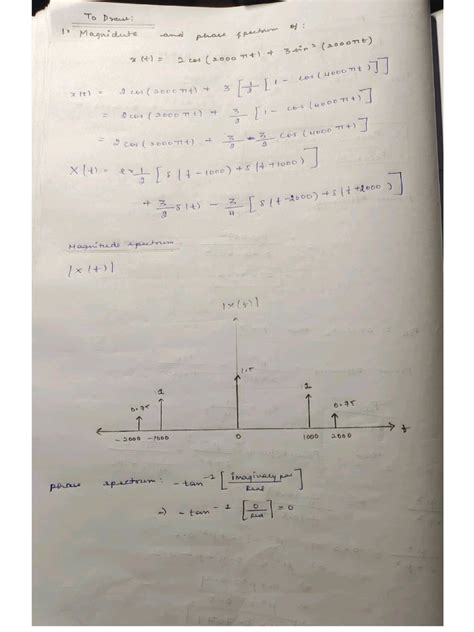 To Draw:
1. Magnidute and phase spectrum of:
x(t) = 2 cos(2000πt) + 3 sin²(2000πt)
x(t) = 2 cos(2000πt) + 3 [1/2 [1 - cos(4000πt)]]
= 2 cos(2000πt) + 3/2 [1 - cos(4000πt)]
= 2 cos(2000πt) + 3/2 - 3/2 cos(4000πt)
X(f) = 2×1/2 [δ(f-1000) + δ(f+1000)]
+ 3/2 δ(f) - 3/4 [δ(f-2000) + δ(f+2000)]
Magnitude spectrum
|X(f)|
|X(f)|
1.5
0.75 1 1 0.75
-2000 -1000 0 1000 2000 f
phase spectrum: -tan⁻¹ [Imaginary par/Real]
⇒ -tan⁻¹ [0/Real] = 0